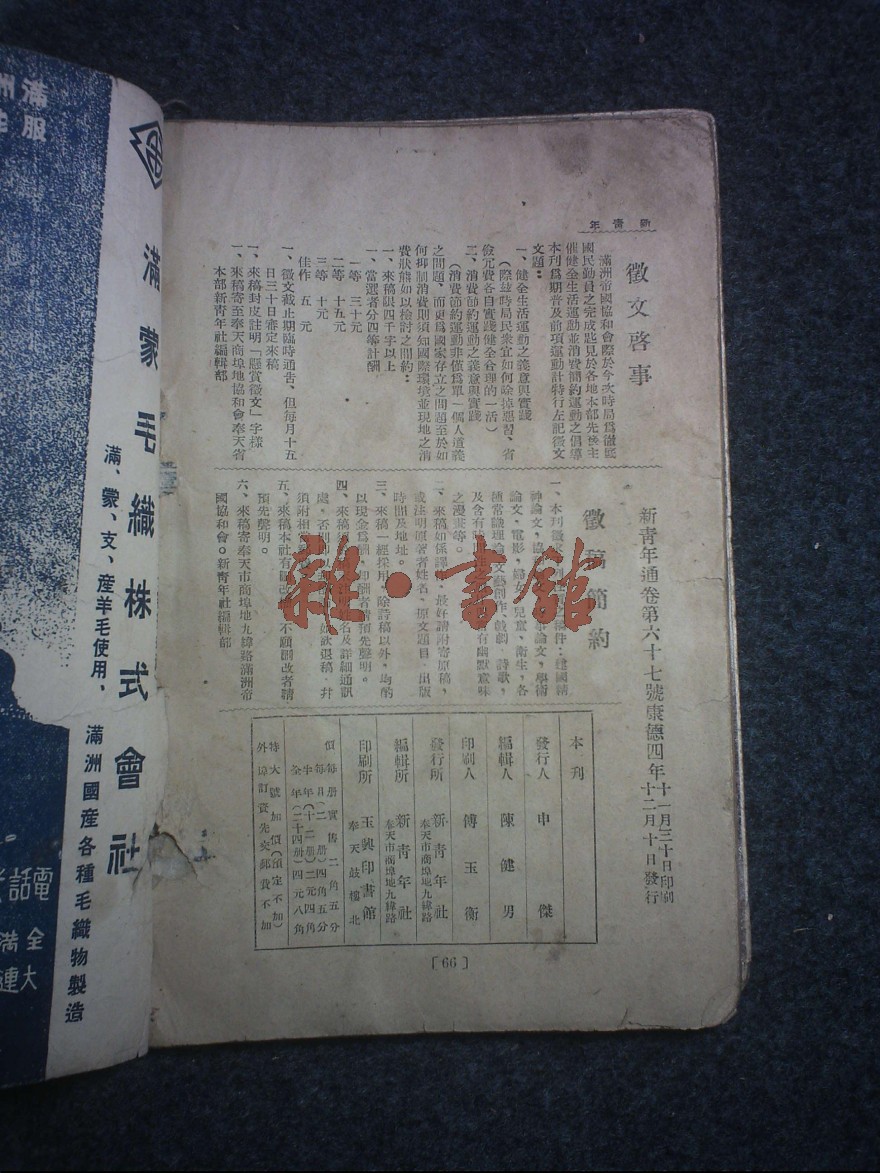 新青年
徵文啓事
滿洲帝國協和會際於今次時局爲徹底
國民動員之完成匙見於各地本部先後主
催健全生活運動並消費簡約運動之倡導
本刊爲期普及前項運動計特行左記徵文
文題：
一、健全生活運動之義意與實踐
（際玆時局民衆宜如何除掉惡習、省
儉冗費各自實踐健全合理的一活）
二、消費節約運動之義意與實踐
（消費節約運動非僅爲單一個人道義
之問題、而更爲國家存立之問題至於如
何抑制消費則須知國際環境並現地之消
費狀態如以檢討之間約：
一、來稿限四千字以上
一、當選者分四等計酬
一等 三十元
二等 十五元
三等 十元
佳作 五元
一、徵文截止期臨時通告、但每月十五
日三十日審定來稿
一、來稿封皮註明「懸賞徵文」字樣
一、來稿寄至奉天商埠地協和會奉天省
本部新青年社編輯部
新青年通卷第六十七號康德四年
十一月三十日印刷
十二月十日發行
徵稿簡約
一、本刊徵
件：建國精
神論文，協
論文，學術
論文，電影，婦女，兒童，衞生，各
種常識理論，文藝創作，戲劇，詩歌，
及含有
有幽默意味
之漫畫等。
二、來稿如係譯
最好請附寄原稿，
或注明原著者姓名，原文題目，出版
時間及地址。
三、來稿一經採用，除詩稿以外，均酌
以現金爲酬
酬者請預先聲明。
四、來稿須
名及詳細通訊
處，否則
如欲退稿，并
須附相
五、來稿本社有
改
不願刪改者請
預先聲明。
六、來稿寄奉天市商埠地九緯路滿洲帝
國協和會。新青年社編輯部
本刊
發行人 申傑
編輯人 陳健男
印刷人 傅玉衡
發行所 新青年社
奉天市商埠地九緯路
編輯所 新青年社
奉天市商埠地九緯路
印刷所 玉興印書館
奉天鼓樓北
價
每册實售二角五分
每月(二册)四角五分
半年(十二册)二元四角
全年(二十四册)四元八角
特大號加價(預定不加)
外埠訂資先交郵費不加
[66]
滿蒙毛織株式會社
滿、蒙、支、產羊毛使用、
滿洲國產各種毛織物製造
滿洲
服
電話
全滿
大連
雜·書館